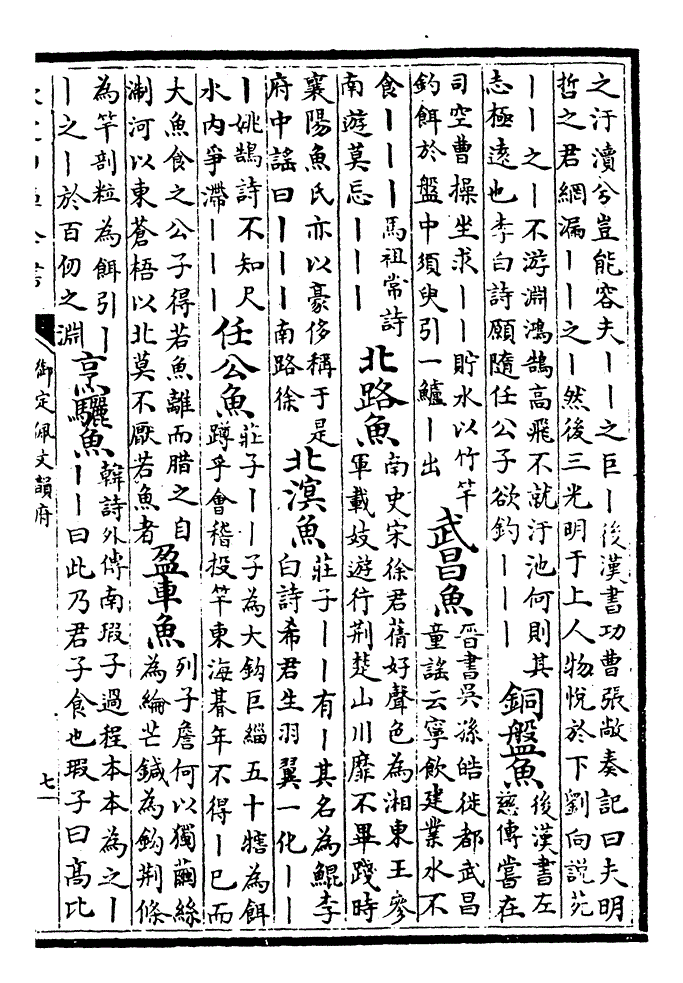 之汙瀆兮豈能容夫丨丨之巨丨後漢書功曹張敞奏記曰夫明
哲之君網漏丨丨之丨然後三光明于上人物悅於下劉向説苑
丨丨之丨不游淵鴻鵠高飛不就汙池何則其
志極遠也李白詩願隨任公子欲釣丨丨丨
銅盤魚
後漢書左
慈傳嘗在
司空曹操坐求丨丨貯水以竹竿
釣餌於盤中須臾引一鱸丨出
武昌魚
晉書吳孫皓徙都武昌
童謠云寧飲建業水不
食丨丨丨馬祖常詩
南遊莫忘丨丨丨
北路魚
南史宋徐君蒨好聲色為湘東王參
軍載妓遊行荆楚山川靡不畢踐時
襄陽魚氏亦以豪侈稱于是
府中謠曰丨丨丨南路徐
北溟魚
莊子丨丨有丨其名為鯤李
白詩希君生羽翼一化丨丨
丨姚鵠詩不知尺
水内爭滯丨丨丨
任公魚
莊子丨丨子為大鈎巨緇五十犗為餌
蹲乎會稽投竿東海暮年不得丨已而
大魚食之公子得若魚離而腊之自
淛河以東蒼梧以北莫不厭若魚者
盈車魚
列子詹何以獨繭絲
為綸芒鍼為鈎荆條
為竿剖粒為餌引丨
丨之丨於百仞之淵
烹驪魚
韓詩外傳南瑕子過程本本為之丨
丨丨曰此乃君子食也瑕子曰髙比
御定佩文韻府
七一